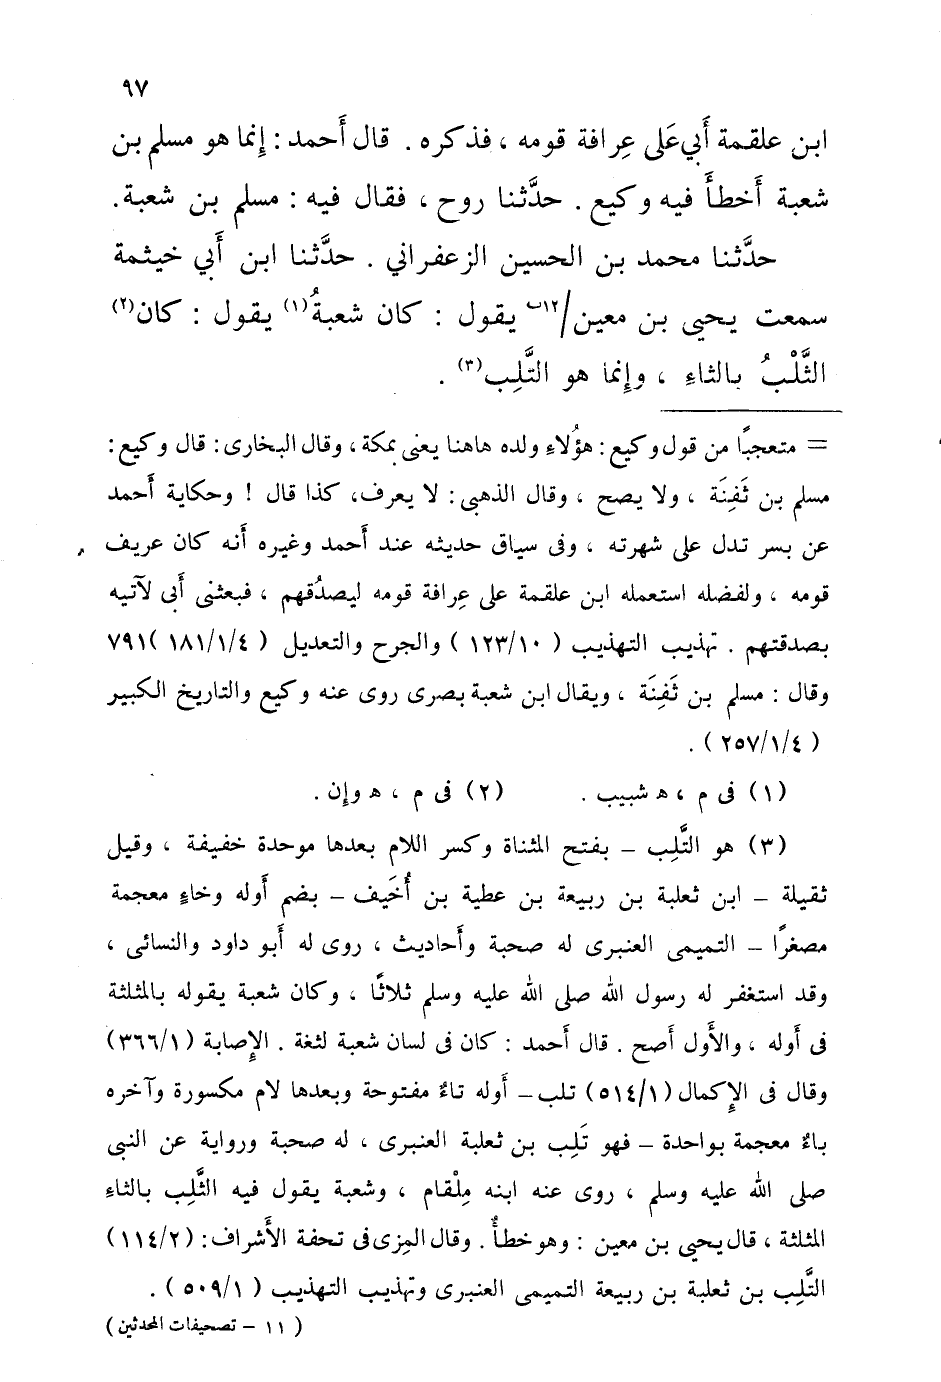 ٩٧
ابن علقمة أَبي عَلى عِرافة قومه ، فذكره . قال أَحمد : إِنما هو مسلم بن
شعبة أَخطأَ فيه وكيع . حدَّثنا روح ، فقال فيه : مسلم بن شعبة .
حدَّثنا محمد بن الحسين الزعفراني . حدَّثنا ابن أَبي خيثمة
سمعت يحيى بن معين/١٢ب يقول : كان شعبةُ(١) يقول : كان(٢)
الثَّلْبُ بالثاءِ ، وإِنما هو التَّلِب(٣) .
= متعجبًا من قول وكيع : هؤُلاءِ ولده هاهنا يعنى بمكة ، وقال البخارى : قال وكيع :
مسلم بن ثَفِنَة ، ولا يصح ، وقال الذهبى : لا يعرف، كذا قال ! وحكاية أَحمد
عن بسر تدل على شهرته ، وفى سياق حديثه عند أَحمد وغيره أَنه كان عريف
قومه ، ولفضله استعمله ابن علقمة على عِرافة قومه ليصدُقهم ، فبعثنى أَبى لآتيه
بصدقتهم . تهذيب التهذيب ( ١٢٣/١٠ ) والجرح والتعديل ( ١٨١/١/٤ )٧٩١
وقال : مسلم بن ثَفِنَة ، ويقال ابن شعبة بصرى روى عنه وكيع والتاريخ الكبير
( ٢٥٧/١/٤ ) .
(١) فى م ، ه شبيب . (٢) فى م ، ه وإن .
(٣) هو التَّلِب – بفتح المثناة وكسر اللام بعدها موحدة خفيفة ، وقيل
ثقيلة – ابن ثعلبة بن ربيعة بن عطية بن أُخَيف – بضم أَوله وخاءٍ معجمة
مصغرًا – التميمى العنبرى له صحبة وأَحاديث ، روى له أَبو داود والنسائى ،
وقد استغفر له رسول الله صلى الله عليه وسلم ثلاثًا ، وكان شعبة يقوله بالمثلثة
فى أَوله ، والأَول أَصح . قال أَحمد : كان فى لسان شعبة لثغة . الإِصابة (٣٦٦/١)
وقال فى الإِكمال (٥١٤/١) تلب – أَوله تاءٌ مفتوحة وبعدها لام مكسورة وآخره
باءٌ معجمة بواحدة – فهو تَلِب بن ثعلبة العنبرى ، له صحبة ورواية عن النبى
صلى الله عليه وسلم ، روى عنه ابنه مِلْقام ، وشعبة يقول فيه الثَّلِب بالثاءِ
المثلثة ، قال يحيى بن معين : وهو خطأٌ . وقال المِزى فى تحفة الأَشراف : (١١٤/٢)
التَّلِب بن ثعلبة بن ربيعة التميمى العنبرى وتهذيب التهذيب ( ٥٠٩/١ ) .
( ١١ – تصحيفات المحدثين )